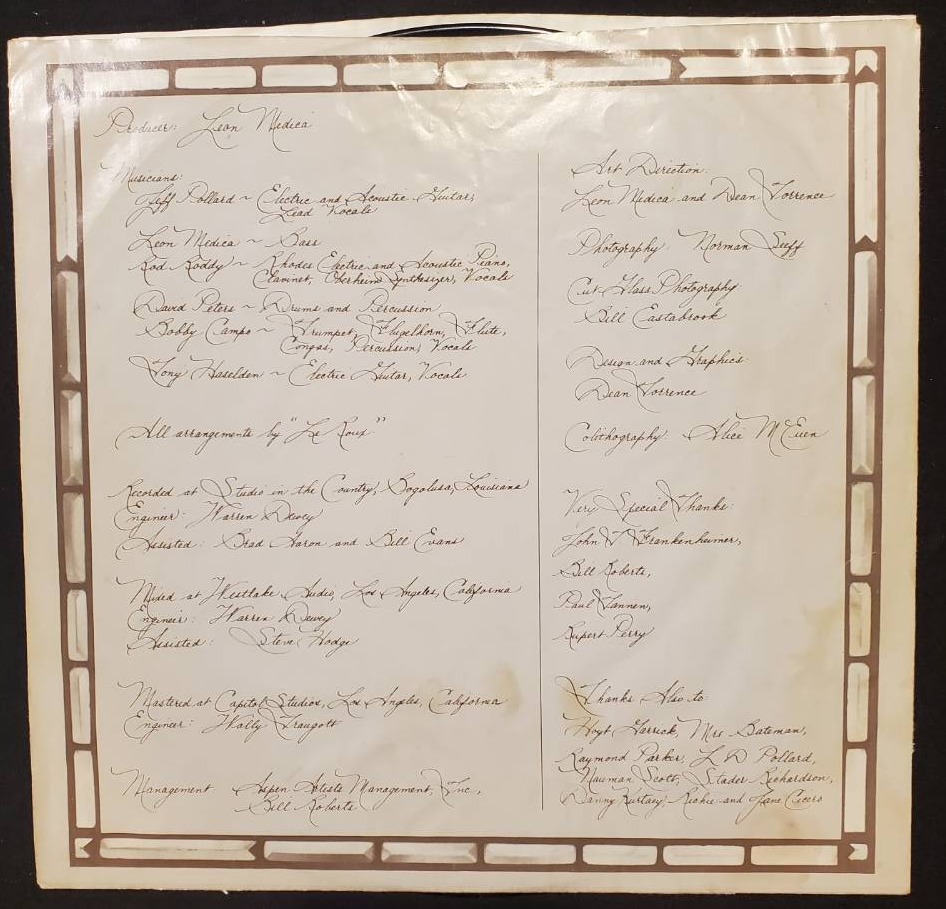 Producer: Leon Medica
Musicians:
Jeff Pollard ~ Electric and Acoustic Guitars,
Lead Vocals
Leon Medica ~ Bass
Rod Roddy ~ Rhodes Electric and Acoustic Piano,
Clavinet, Oberheim Synthesizer, Vocals
David Peters ~ Drums and Percussion
Bobby Campo ~ Trumpet, Flugelhorn, Flute,
Congas, Percussion, Vocals
Tony Haselden ~ Electric Guitar, Vocals
All arrangements by "Le Roux"
Recorded at Studio in the Country, Bogolusa, Louisiana
Engineer: Warren Dewey
Assisted: Brad Aaron and Bill Evans
Mixed at Westlake Audio, Los Angeles, California
Engineer: Warren Dewey
Assisted: Steve Hodge
Mastered at Capitol Studios, Los Angeles, California
Engineer: Wally Traugott
Management Aspen Artists Management, Inc.,
Bill Roberts
Art Direction:
Leon Medica and Dean Torrence
Photography: Norman Seeff
Cut Glass Photography:
Bill Eastabrook
Design and Graphics:
Dean Torrence
Colithography: Alice McEuen
Very Special Thanks:
John T. Frankenheimer,
Bill Roberts,
Paul Tannen,
Rupert Perry
Thanks Also to
Hoyt Garrick, Mrs. Bateman,
Raymond Parker, L D Pollard,
Nauman Scott, Stader Richardson,
Danny Kurtacy, Richie and Jane Cicero